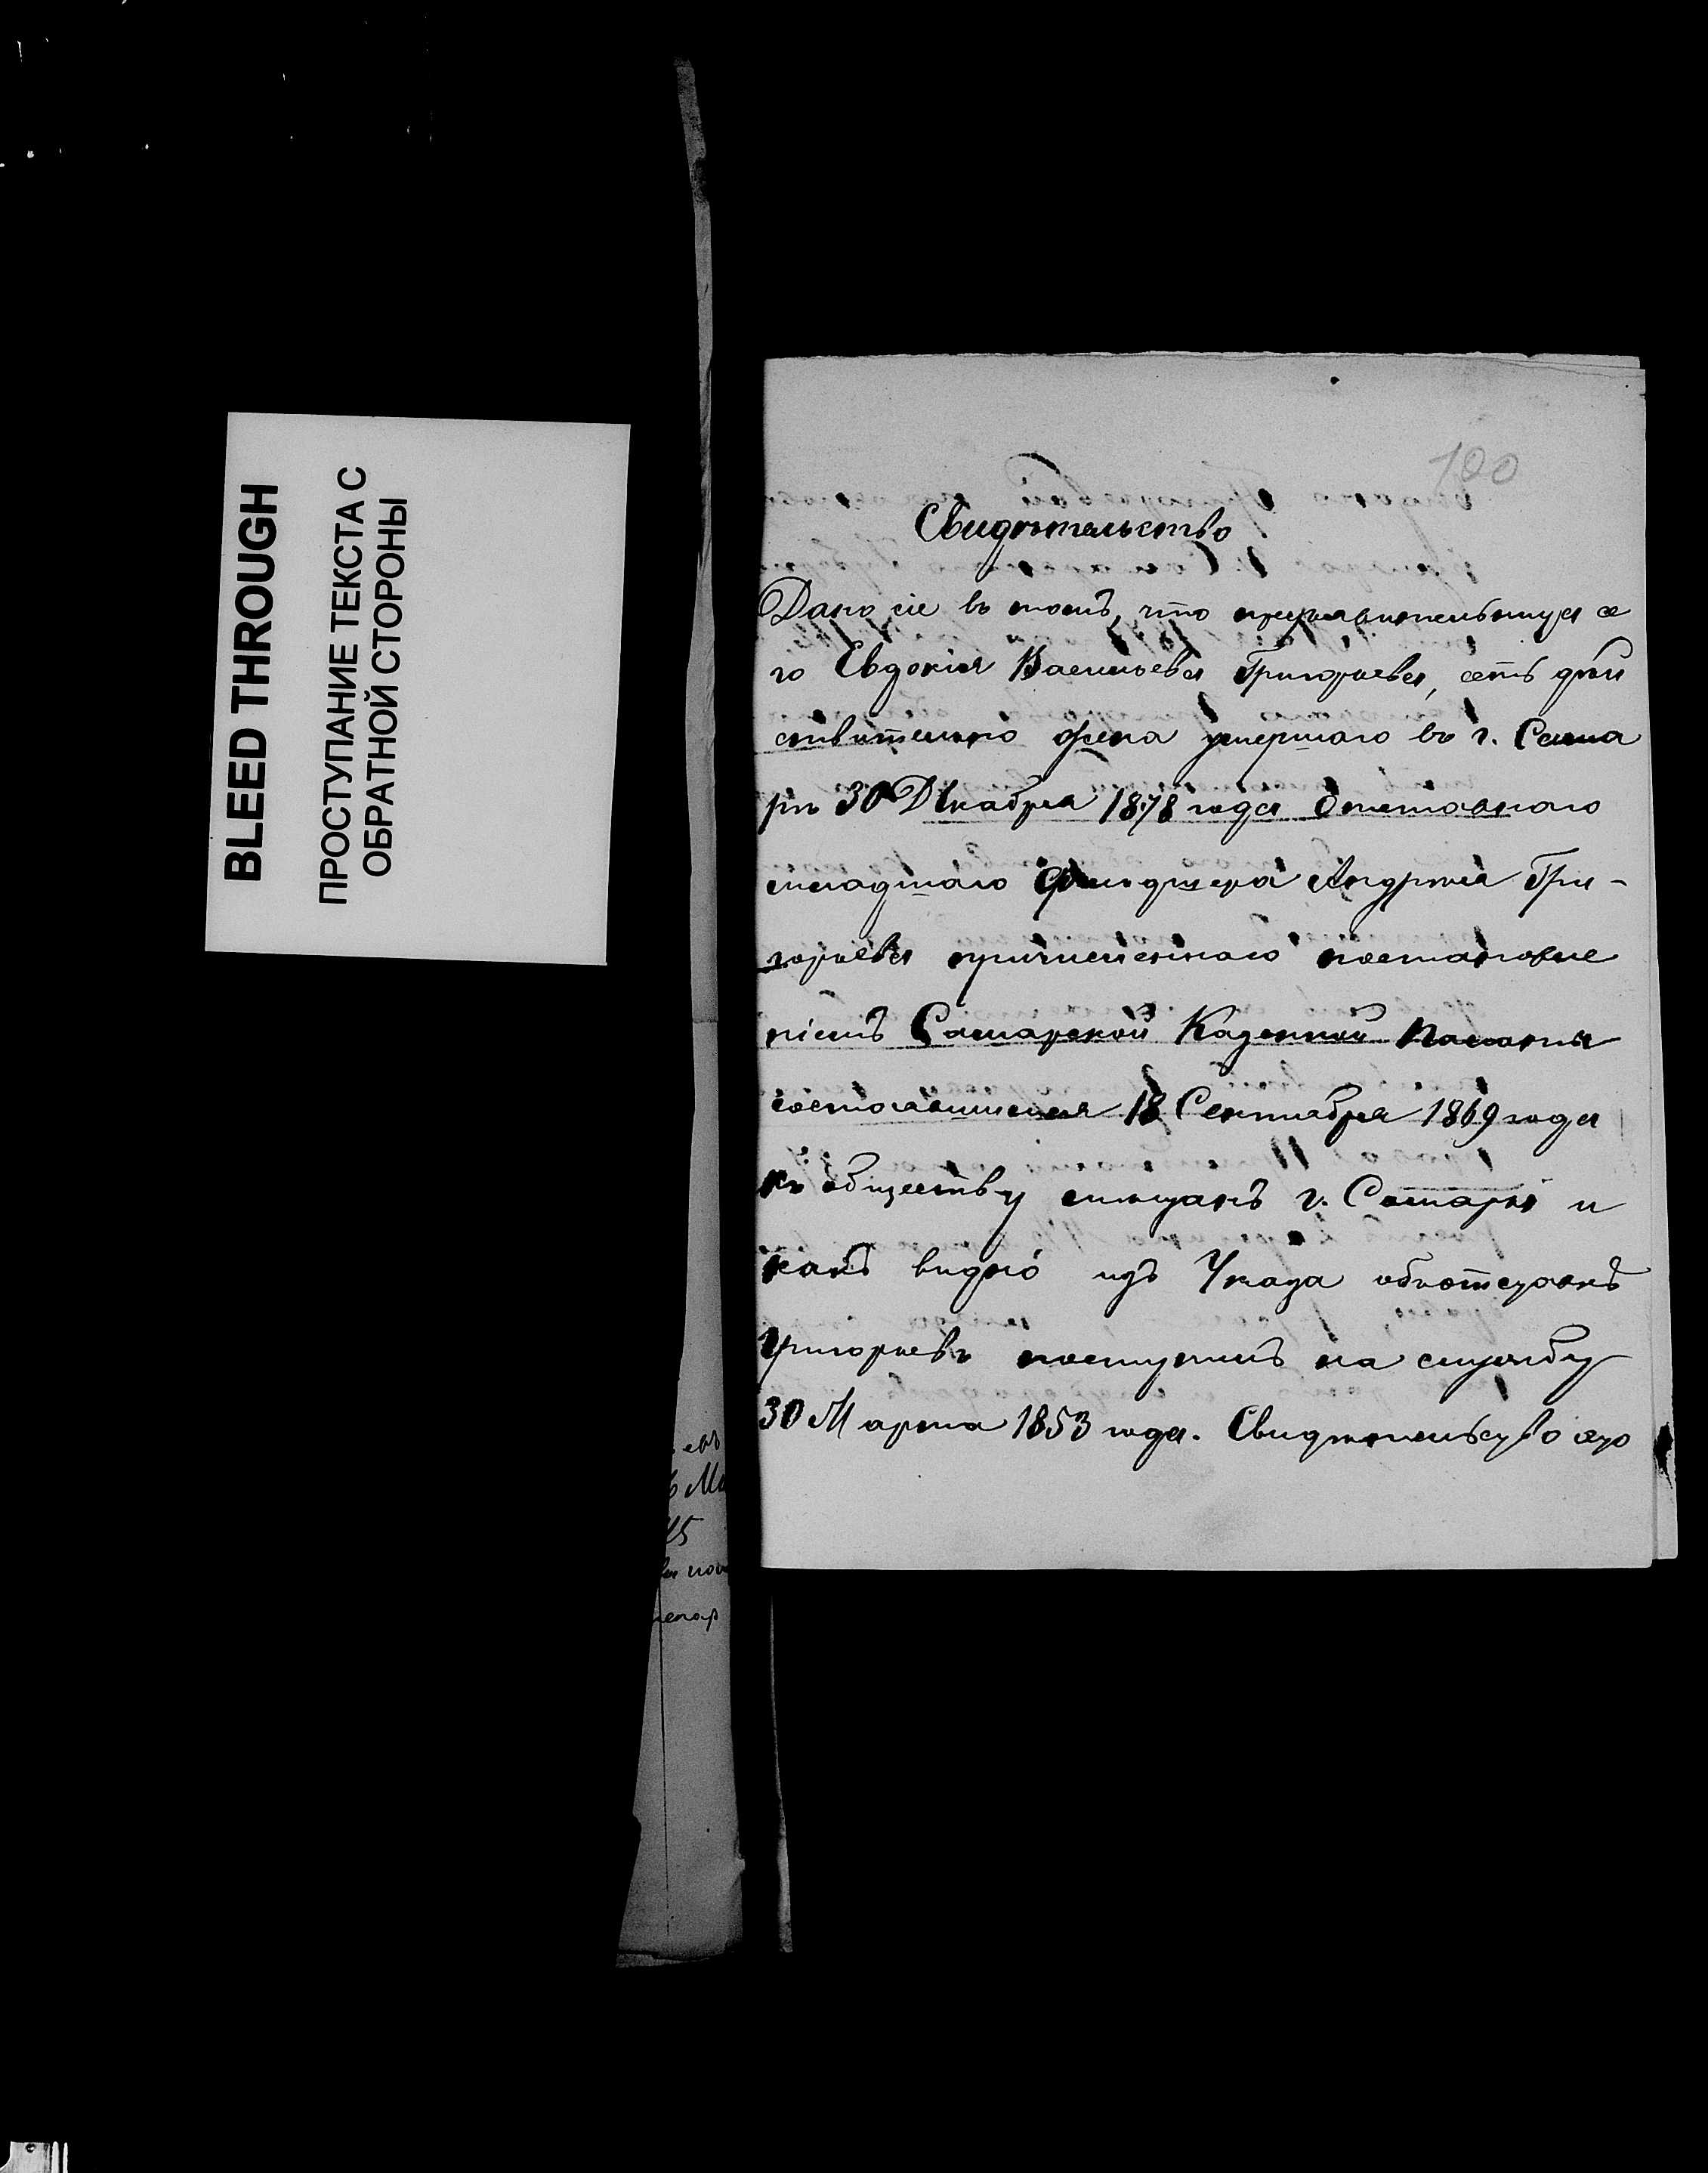 BLEED THROUGH
ПРОСТУПАНИЕ ТЕКСТА С
ОБРАТНОЙ СТОРОНЫ
100
Свидѣтельство
Дано сіе въ томъ, что предъявительница се
го Евдокія Васильева Григорьева, есть дѣй
ствительно жена умершаго въ г. Сама
рѣ 30 Декабря 1878 года Отставнаго
младшаго Фельдшера Андрея Гри-
горьева причисленнаго постановле
ніемъ Самарской Казенной Палаты
состоявшимся 18 Сентября 1869 года
къ обществу мѣщанъ г. Самары и
какъ видно изъ Указа объ отставкѣ
Григорьевъ поступилъ на службу
30 Марта 1853 года. Свидѣтельство это
евъ